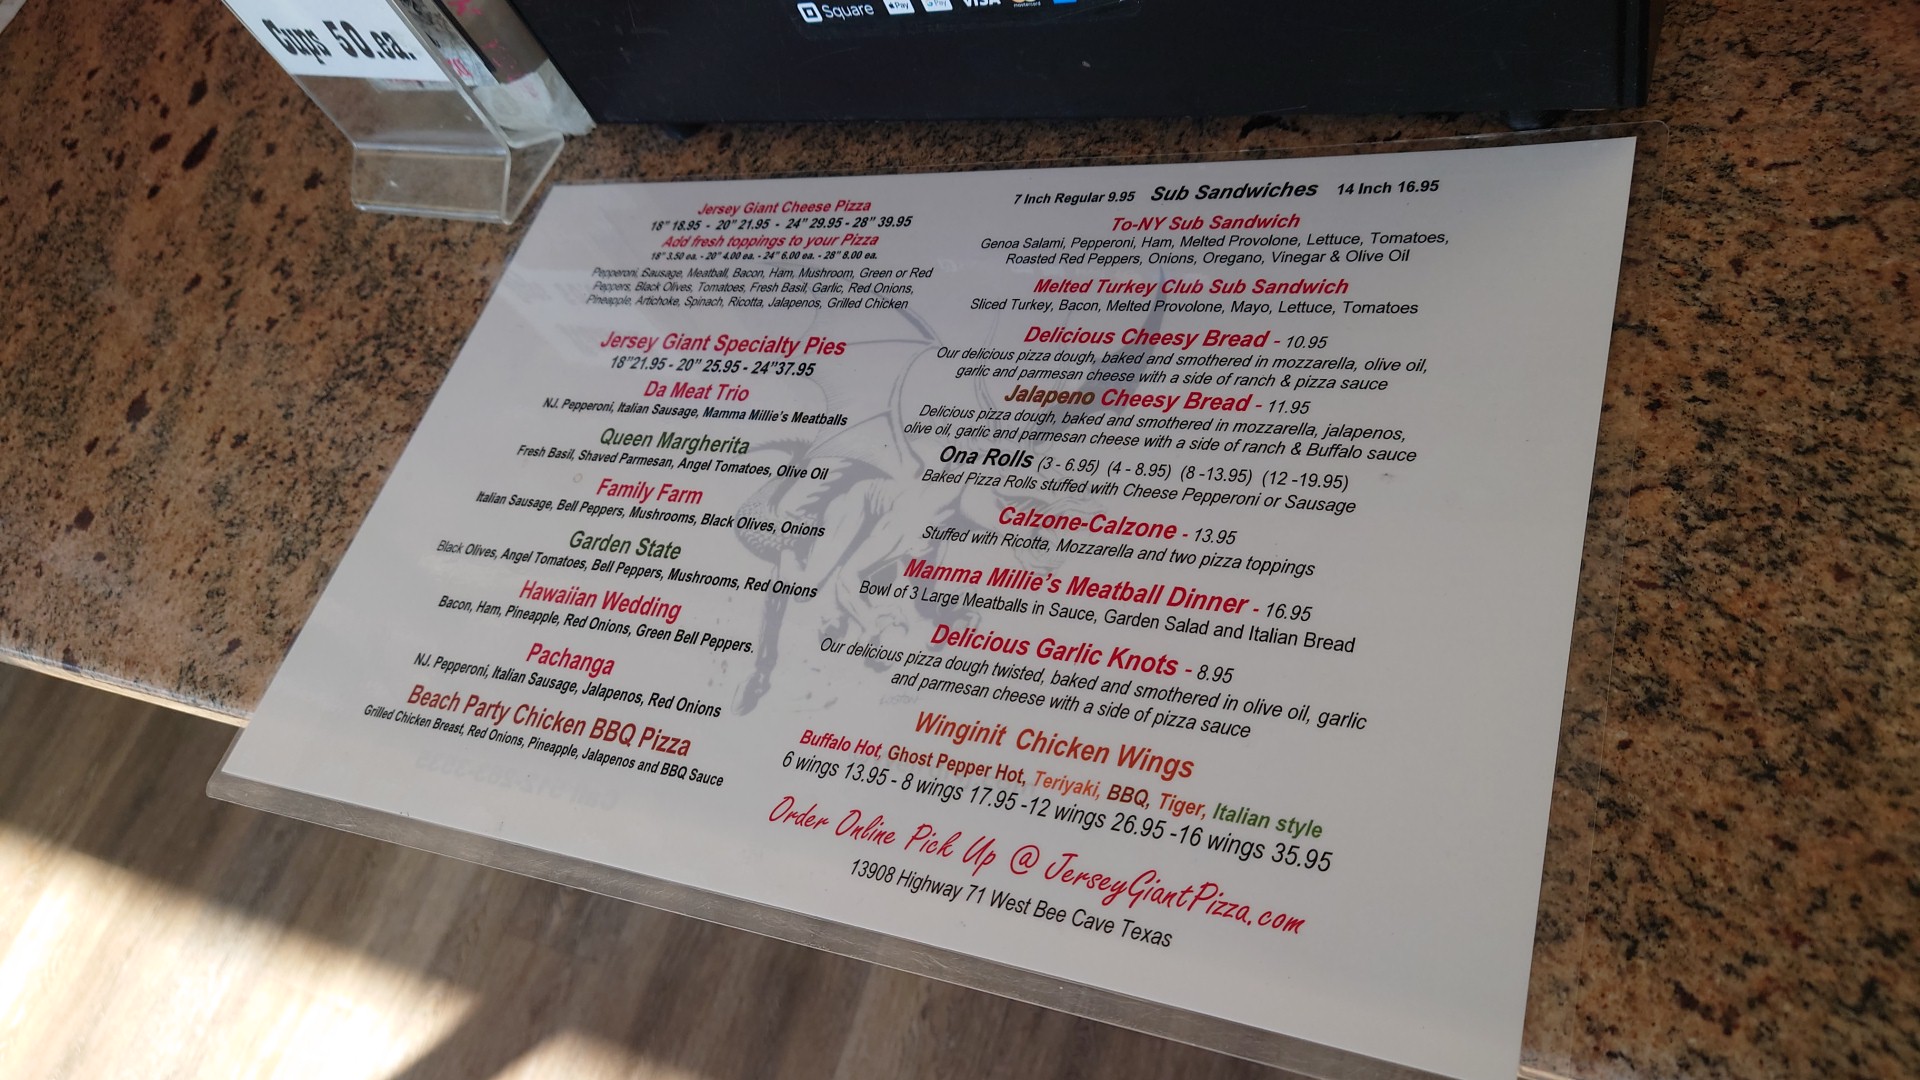 Cups 50.ea.
Square Pay Pay VISA mastercard
Jersey Giant Cheese Pizza
18" 18.95 - 20" 21.95 - 24" 29.95 - 28" 39.95
Add fresh toppings to your Pizza
18" 3.50 ea. - 20" 4.00 ea. - 24" 6.00 ea. - 28" 8.00 ea.
Pepperoni, Sausage, Meatball, Bacon, Ham, Mushroom, Green or Red
Peppers, Black Olives, Tomatoes, Fresh Basil, Garlic, Red Onions,
Pineapple, Artichoke, Spinach, Ricotta, Jalapenos, Grilled Chicken
Jersey Giant Specialty Pies
18"21.95 - 20" 25.95 - 24"37.95
Da Meat Trio
NJ. Pepperoni, Italian Sausage, Mamma Millie's Meatballs
Queen Margherita
Fresh Basil, Shaved Parmesan, Angel Tomatoes, Olive Oil
Family Farm
Italian Sausage, Bell Peppers, Mushrooms, Black Olives, Onions
Garden State
Black Olives, Angel Tomatoes, Bell Peppers, Mushrooms, Red Onions
Hawaiian Wedding
Bacon, Ham, Pineapple, Red Onions, Green Bell Peppers.
Pachanga
NJ. Pepperoni, Italian Sausage, Jalapenos, Red Onions
Beach Party Chicken BBQ Pizza
Grilled Chicken Breast, Red Onions, Pineapple, Jalapenos and BBQ Sauce
7 Inch Regular 9.95 Sub Sandwiches 14 Inch 16.95
To-NY Sub Sandwich
Genoa Salami, Pepperoni, Ham, Melted Provolone, Lettuce, Tomatoes,
Roasted Red Peppers, Onions, Oregano, Vinegar & Olive Oil
Melted Turkey Club Sub Sandwich
Sliced Turkey, Bacon, Melted Provolone, Mayo, Lettuce, Tomatoes
Delicious Cheesy Bread - 10.95
Our delicious pizza dough, baked and smothered in mozzarella, olive oil,
garlic and parmesan cheese with a side of ranch & pizza sauce
Jalapeno Cheesy Bread - 11.95
Delicious pizza dough, baked and smothered in mozzarella, jalapenos,
olive oil, garlic and parmesan cheese with a side of ranch & Buffalo sauce
Ona Rolls (3 - 6.95) (4 - 8.95) (8 -13.95) (12 -19.95)
Baked Pizza Rolls stuffed with Cheese Pepperoni or Sausage
Calzone-Calzone - 13.95
Stuffed with Ricotta, Mozzarella and two pizza toppings
Mamma Millie's Meatball Dinner - 16.95
Bowl of 3 Large Meatballs in Sauce, Garden Salad and Italian Bread
Delicious Garlic Knots - 8.95
Our delicious pizza dough twisted, baked and smothered in olive oil, garlic
and parmesan cheese with a side of pizza sauce
Winginit Chicken Wings
Buffalo Hot, Ghost Pepper Hot, Teriyaki, BBQ, Tiger, Italian style
6 wings 13.95 - 8 wings 17.95 -12 wings 26.95 -16 wings 35.95
Order Online Pick Up @ JerseyGiantPizza.com
13908 Highway 71 West Bee Cave Texas